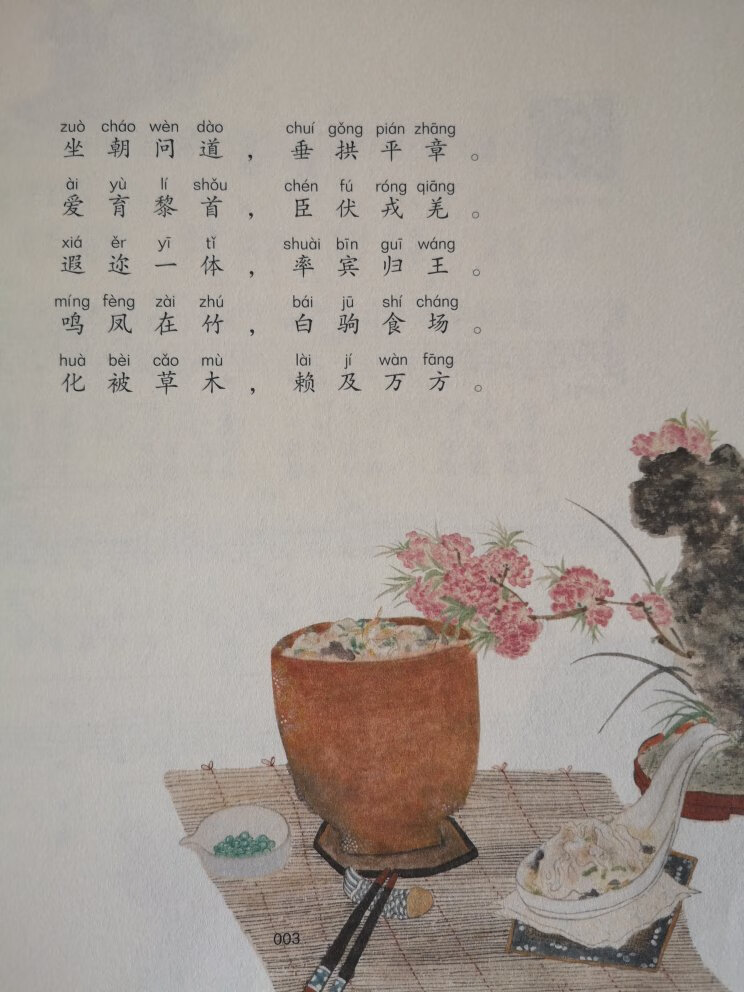 zuò cháo wèn dào chuí gǒng pián zhāng
坐朝问道，垂拱平章。
ài yù lí shǒu chén fú róng qiāng
爱育黎首，臣伏戎羌。
xiá ěr yī tǐ shuài bīn guī wáng
遐迩一体，率宾归王。
míng fèng zài zhú bái jū shí cháng
鸣凤在竹，白驹食场。
huà bèi cǎo mù lài jí wàn fāng
化被草木，赖及万方。
003